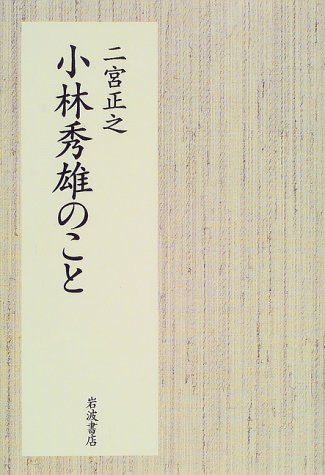 二宮正之
小林秀雄のこと
岩波書店